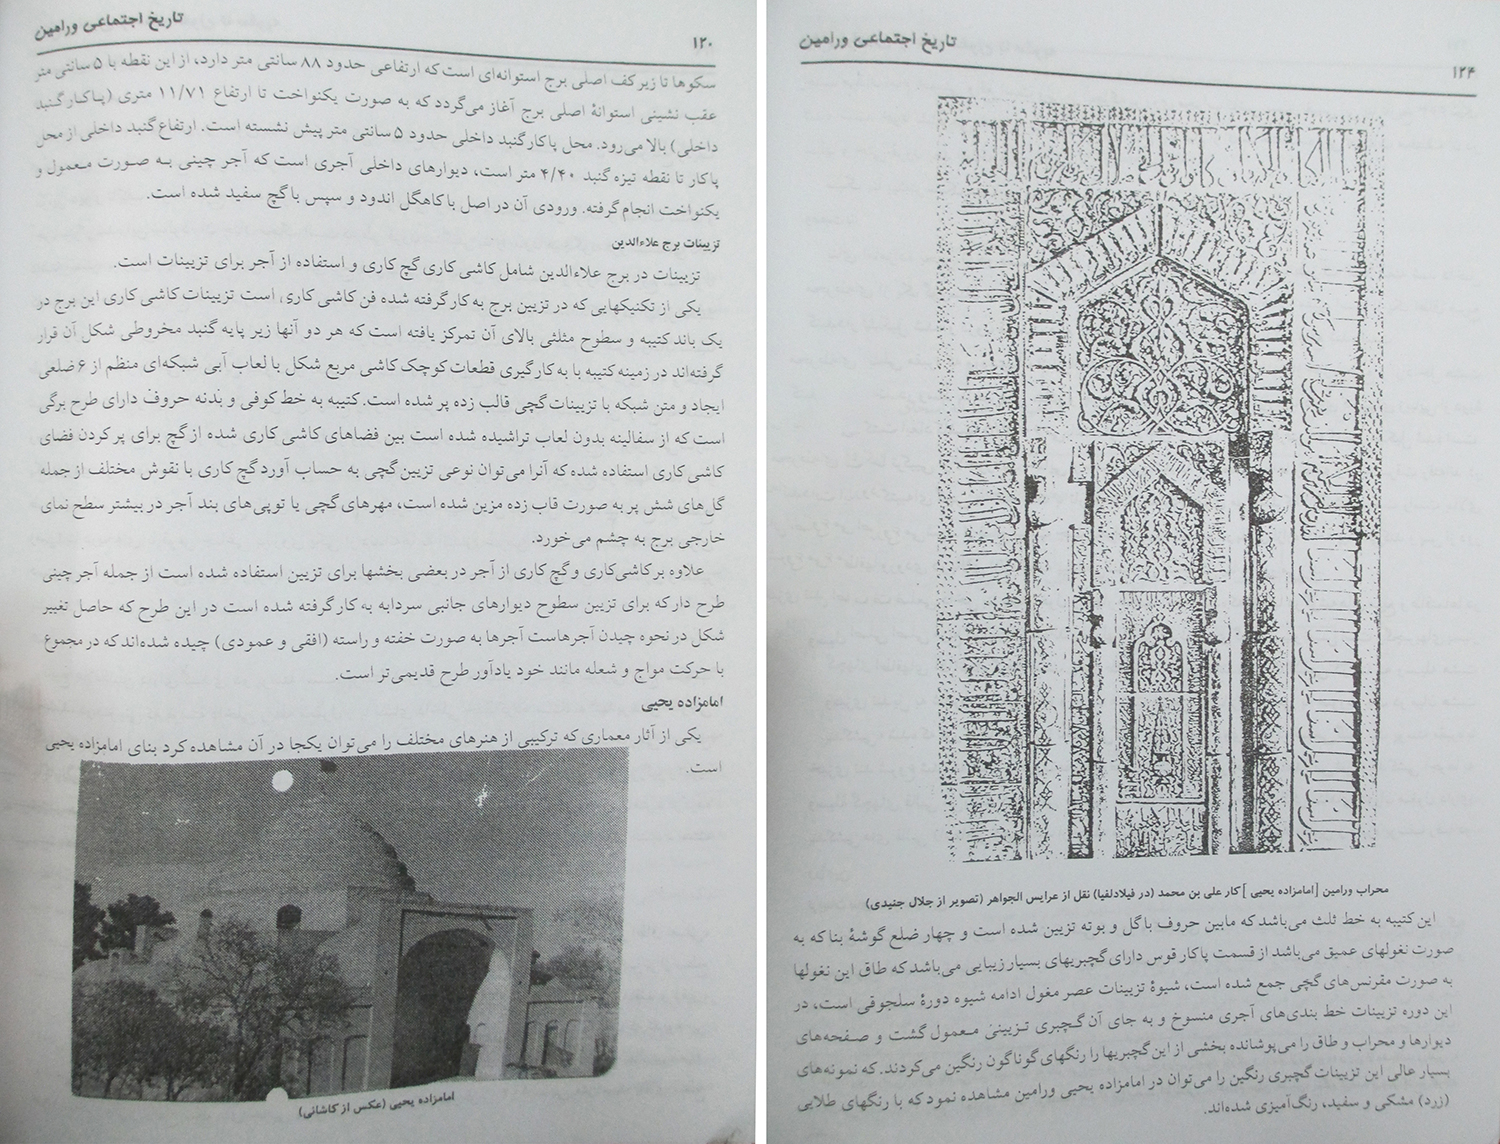 تاریخ اجتماعی ورامین
۱۲۰
سکوها تا زیر کف اصلی برج استوانه‌ای است که ارتفاعی حدود ۸۸ سانتی متر دارد، از این نقطه با ۵ سانتی متر
عقب نشینی استوانهٔ اصلی برج آغاز می‌گردد که به صورت یکنواخت تا ارتفاع ۱۱/۷۱ متری (پاکار گنبد
داخلی) بالا می‌رود. محل پاکار گنبد داخلی حدود ۵ سانتی متر پیش نشسته است. ارتفاع گنبد داخلی از محل
پاکار تا نقطه تیزه گنبد ۴/۴۰ متر است، دیوارهای داخلی آجری است که آجر چینی به صورت معمول و
یکنواخت انجام گرفته. ورودی آن در اصل با کاهگل اندود و سپس با گچ سفید شده است.
تزیینات برج علاءالدین
تزیینات در برج علاءالدین شامل کاشی کاری گچ کاری و استفاده از آجر برای تزیینات است.
یکی از تکنیکهایی که در تزیین برج به کار گرفته شده فن کاشی کاری است تزیینات کاشی کاری این برج در
یک باند کتیبه و سطوح مثلثی بالای آن تمرکز یافته است که هر دو آنها زیر پایه گنبد مخروطی شکل آن قرار
گرفته‌اند در زمینه کتیبه با به کارگیری قطعات کوچک کاشی مربع شکل با لعاب آبی شبکه‌ای منظم از ۶ ضلعی
ایجاد و متن شبکه با تزیینات گچی قالب زده پر شده است. کتیبه به خط کوفی و بدنه حروف دارای طرح برگی
است که از سفالینه بدون لعاب تراشیده شده است بین فضاهای کاشی کاری شده از گچ برای پر کردن فضای
کاشی کاری استفاده شده که آنرا می‌توان نوعی تزیین گچی به حساب آورد گچ کاری با نقوش مختلف از جمله
گل‌های شش پر به صورت قاب زده مزین شده است، مهرهای گچی یا توپی‌های بند آجر در بیشتر سطح نمای
خارجی برج به چشم می‌خورد.
علاوه بر کاشی‌کاری و گچ کاری از آجر در بعضی بخشها برای تزیین استفاده شده است از جمله آجر چینی
طرح دار که برای تزیین سطوح دیوارهای جانبی سردابه به کار گرفته شده است در این طرح که حاصل تغییر
شکل در نحوه چیدن آجرهاست آجرها به صورت خفته و راسته (افقی و عمودی) چیده شده‌اند که در مجموع
با حرکت مواج و شعله مانند خود یادآور طرح قدیمی‌تر است.
امامزاده یحیی
یکی از آثار معماری که ترکیبی از هنرهای مختلف را می‌توان یکجا در آن مشاهده کرد بنای امامزاده یحیی
است.
امامزاده یحیی (عکس از کاشانی)
تاریخ اجتماعی ورامین
۱۲۴
محراب ورامین [امامزاده یحیی] کار علی بن محمد (در فیلادلفیا) نقل از عرایس الجواهر (تصویر از جلال جنیدی)
این کتیبه به خط ثلث می‌باشد که مابین حروف با گل و بوته تزیین شده است و چهار ضلع گوشهٔ بنا که به
صورت نغولهای عمیق می‌باشد از قسمت پاکار قوس دارای گچبریهای بسیار زیبایی می‌باشد که طاق این نغولها
به صورت مقرنس‌های گچی جمع شده است، شیوهٔ تزیینات عصر مغول ادامه شیوه دورهٔ سلجوقی است، در
این دوره تزیینات خط بندی‌های آجری منسوخ و به جای آن گچبری تزیینی معمول گشت و صفحه‌های
دیوارها و محراب و طاق را می‌پوشانده بخشی از این گچبریها را رنگهای گوناگون رنگین می‌کردند. که نمونه‌های
بسیار عالی این تزیینات گچبری رنگین را می‌توان در امامزاده یحیی ورامین مشاهده نمود که با رنگهای طلایی
(زرد) مشکی و سفید، رنگ‌آمیزی شده‌اند.